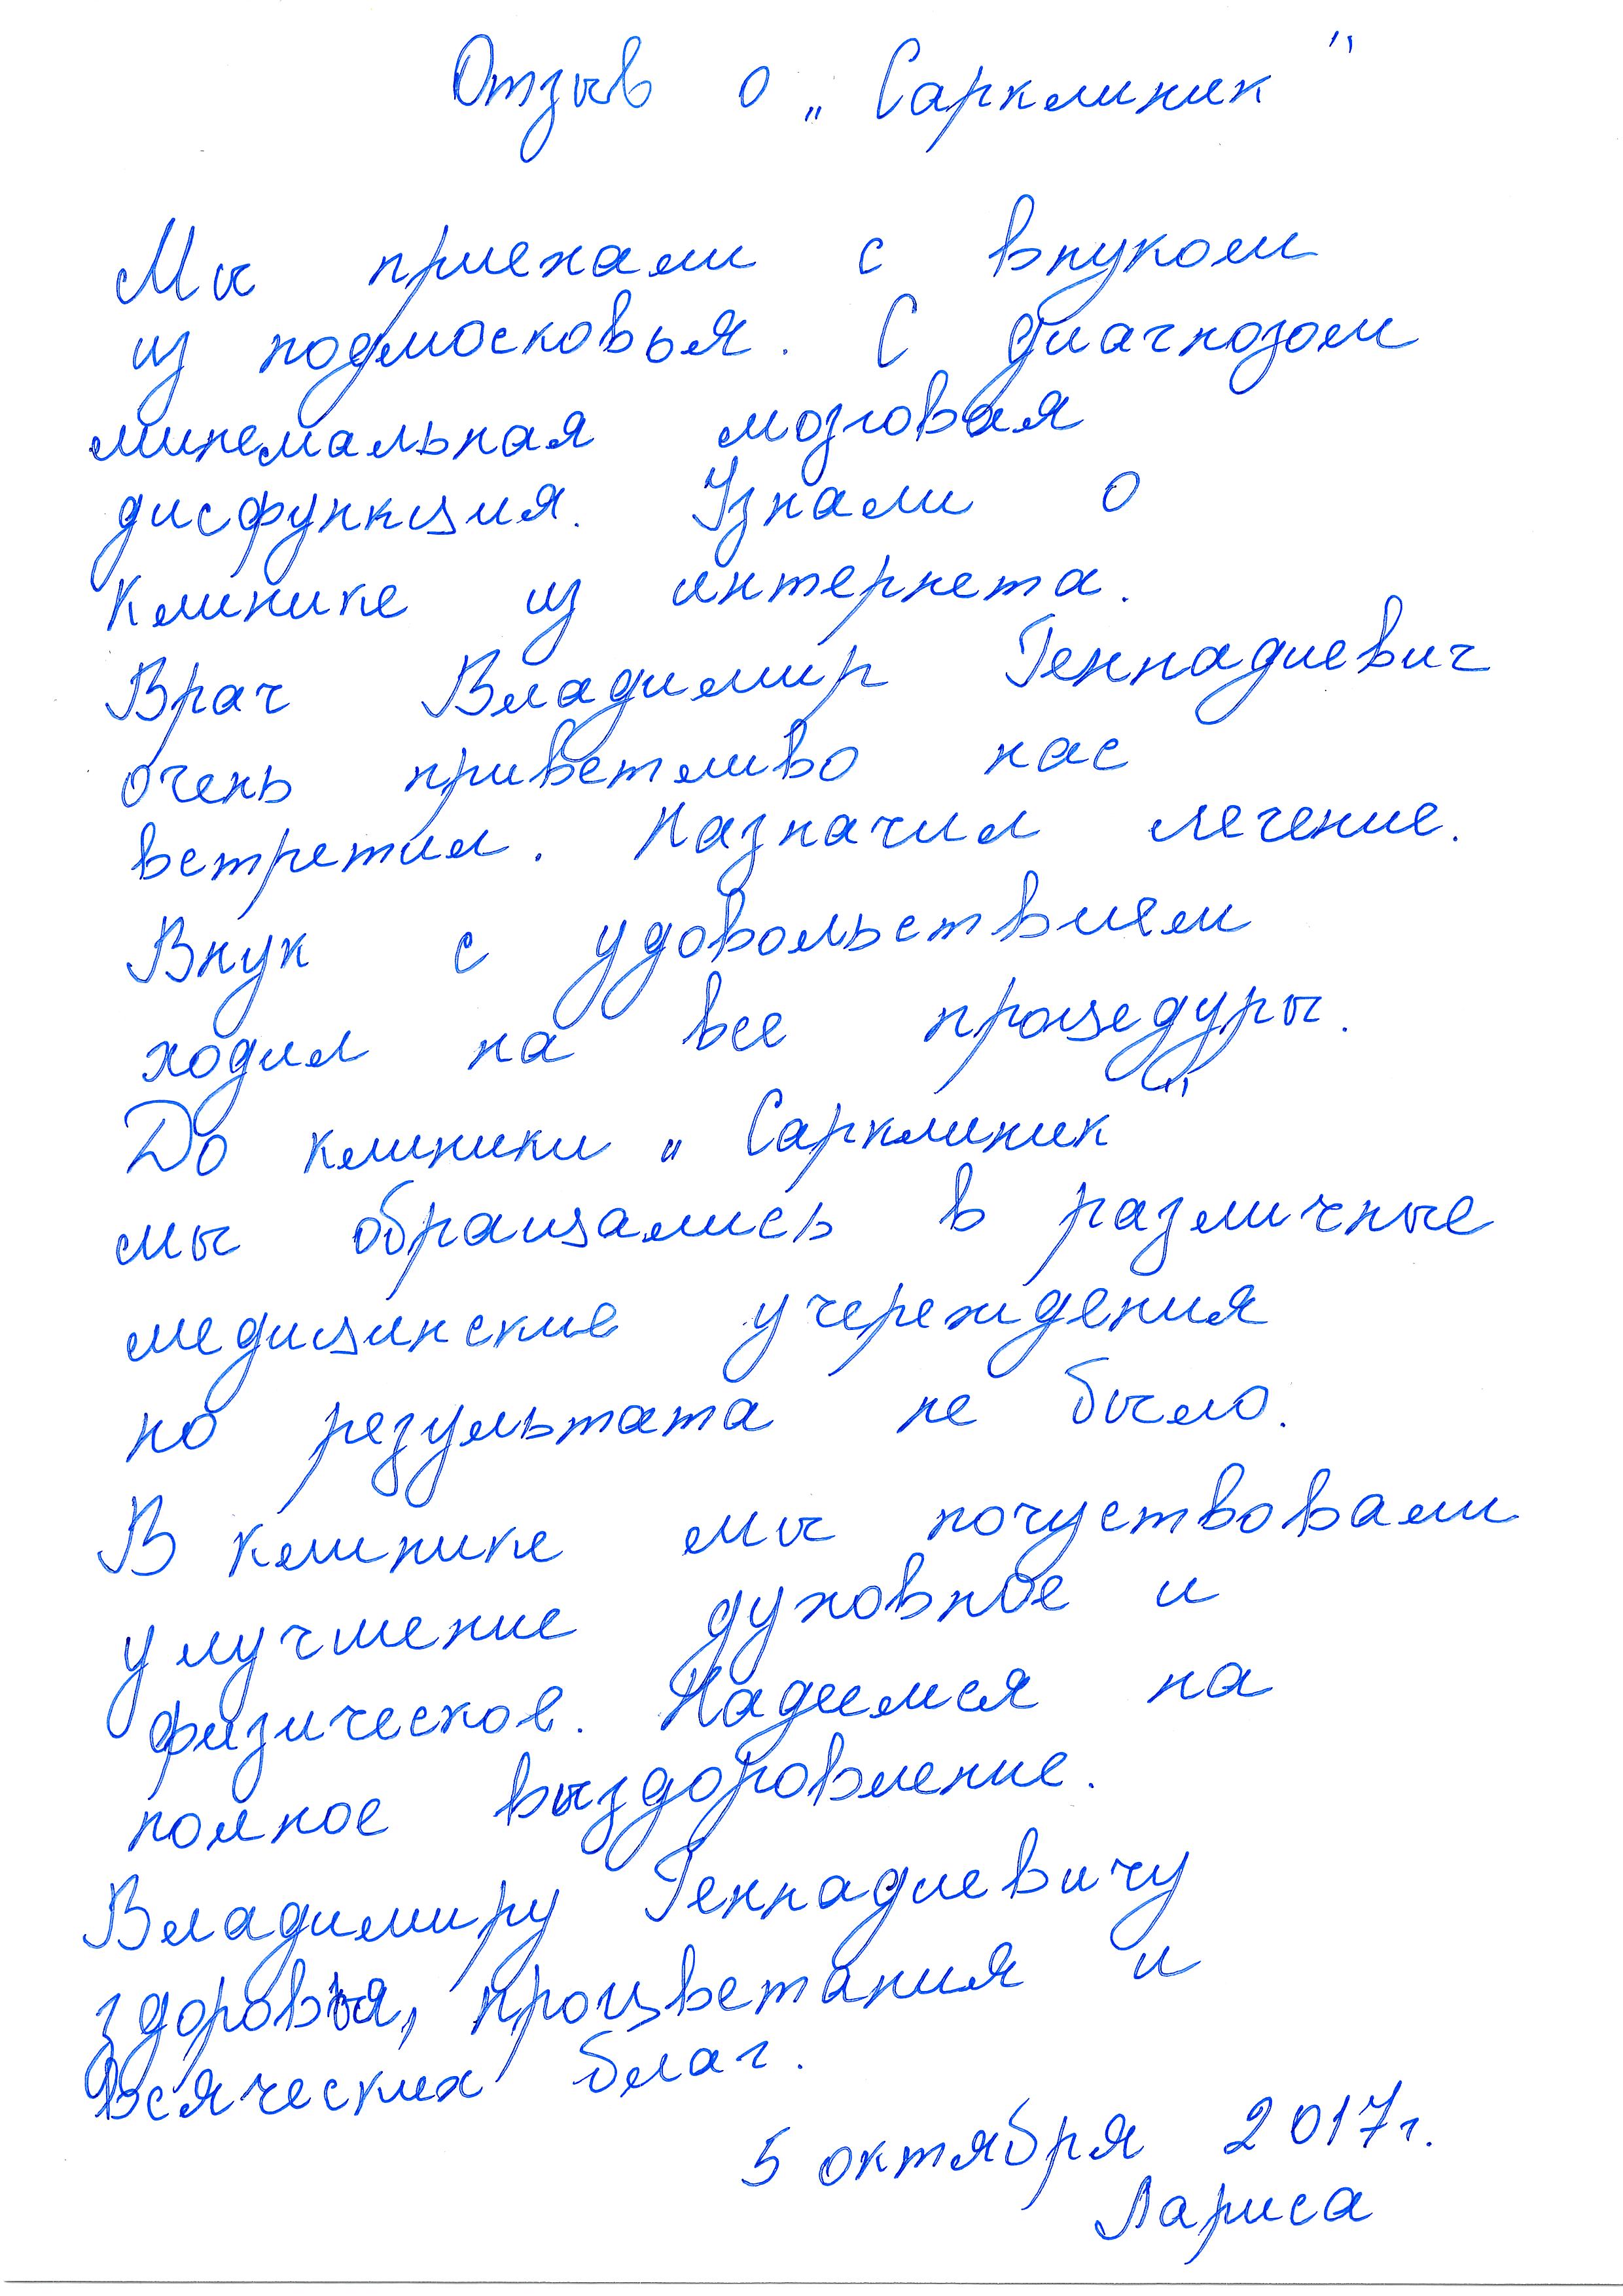 Отзыв о „Сарклиник"
Мы приехали с внуком
из подмосковья. С диагнозом
минемальная мозговая
дисфункция. Узнали о
клинике из интернета.
Врач Владимир Геннадиевич
очень приветливо нас
встретил. Назначил лечение.
Внук с удовольствием
ходил на все процедуры.
До клиники „Сарклиник"
мы обращались в различные
медицинские учереждения
но результата не было.
В клинике мы почуствовали
улучшение духовное и
физическое. Надеемся на
полное выздоровление.
Владимиру Геннадиевичу
здоровья, процветания и
всяческих благ.
5 октября 2017г.
Лариса